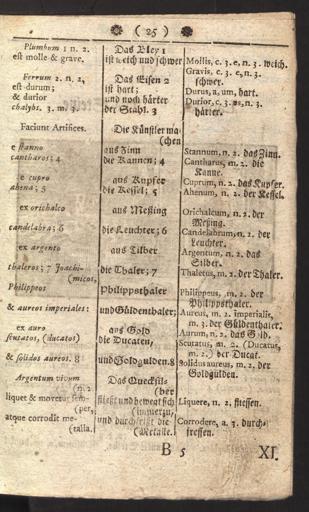 ( 25 )
Plumbum 1 n. 2.
est molle & grave.
Ferrum 2. n. 2,
est durum;
& durior
chalybs. 3. m. 3.
Faciunt Artifices.
e stanno
cantharos; 4
e cupro
ahena; 5
ex orichalco
candelabra; 6
ex argento
thaleros; 7 Joachi-
(micos,
Philippeos
& aureos imperiales:
ex auro
scutatos, (ducatos)
& solidos aureos. 8
Argentum vivum
(n. 2
liquet & movetur sem-
(per,
atque corrodit me-
(talla.
Das Bley 1
ist weich und schwer
Das Eisen 2
ist hart;
und noch härter
der Stahl. 3
Die Künstler ma-
(chen
aus Zinn
die Kannen; 4
aus Kupfer
die Kessel; 5
aus Meßing
die Leuchter; 6
aus Silber
die Thaler; 7
Philippsthaler
und Güldenthaler;
aus Gold
die Ducaten,
und Goldgulden. 8
Das Quecksil-
(ber
fließt und beweget sich
(immerzu,
und durchfrißt die
(Metalle.
Mollis, c. 3. e, n. 3. weich.
Gravis, c. 3. e, n. 3.
schwer.
Durus, a, um, hart.
Durior, c. 3. us, n. 3.
härter.
Stannum, n. 2. das Zinn.
Cantharus, m. 2. die
Kanne.
Cuprum, n. 2. das Kupfer.
Ahenum, n. 2. der Kessel.
Orichalcum, n. 2. der
Meßing.
Candelabrum, n. 2. der
Leuchter.
Argentum, n. 2. das
Silber.
Thalerus, m. 2. der Thaler.
Philippeus, m. 2. der
Philippsthaler.
Aureus, m. 2. imperialis,
m. 3. der Güldenthaler.
Aurum, n. 2. das Gold.
Scutatus, m. 2. (Ducatus,
m. 2.) der Ducat.
Solidus aureus, m. 2. der
Goldgülden.
Liquere, n. 2. fliessen.
Corrodere, a. 3. durch-
fressen.
B 5
XI.